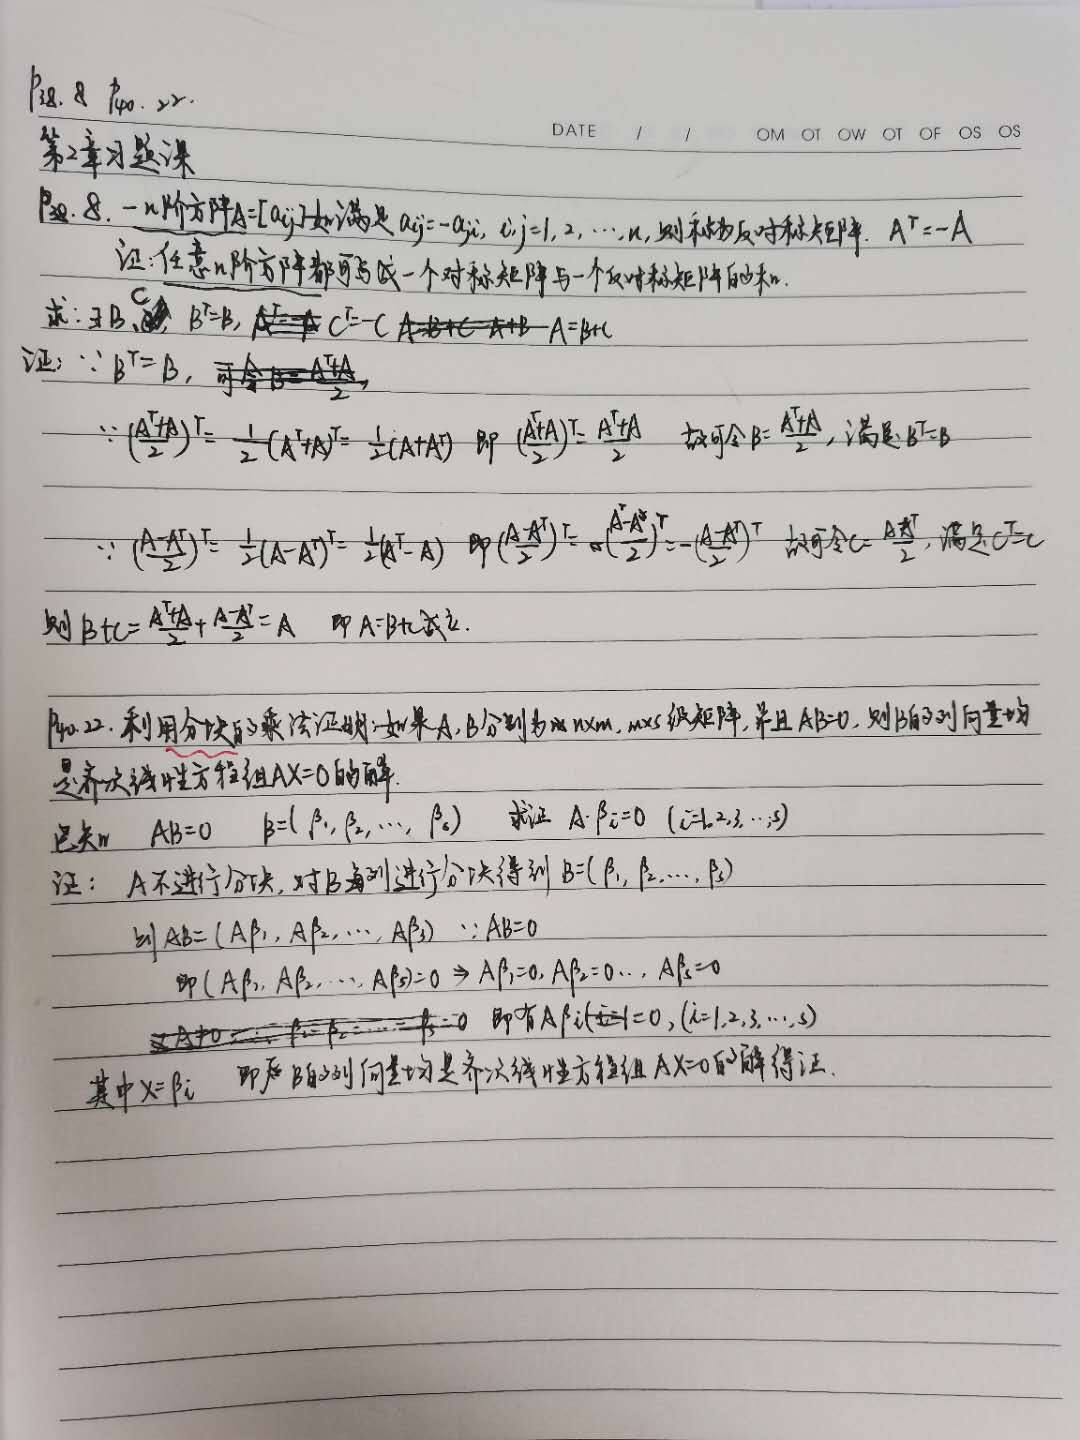 P38. 8  P40. 22.
DATE / / OM OT OW OT OF OS OS
第2章习题课
P38. 8. 一n阶方阵A=[aij]如满足aij=-aji, i,j=1, 2, …, n, 则称为反对称矩阵. Aᵀ=-A
证:任意n阶方阵都可写成一个对称矩阵与一个反对称矩阵的和.
求:ヨB、C, Bᵀ=B, Cᵀ=-C A=B+C
证: ∵ Bᵀ=B,
∵ ((Aᵀ+A)/2)ᵀ= 1/2(Aᵀ+A)ᵀ= 1/2(A+Aᵀ) 即 ((Aᵀ+A)/2)ᵀ= (Aᵀ+A)/2 故可令B= (Aᵀ+A)/2, 满足Bᵀ=B
∵ ((A-Aᵀ)/2)ᵀ= 1/2(A-Aᵀ)ᵀ= 1/2(Aᵀ-A) 即((A-Aᵀ)/2)ᵀ= ((Aᵀ-A)/2)ᵀ=-((A-Aᵀ)/2)ᵀ 故可令C= (A-Aᵀ)/2, 满足Cᵀ=C
则B+C= (Aᵀ+A)/2 + (A-Aᵀ)/2 = A 即A=B+C成立.
P40.22. 利用分块的乘法证明:如果A, B分别为n×m, m×s级矩阵, 并且AB=0, 则B的列向量均
是齐次线性方程组AX=0的解.
已知 AB=0 B=(β₁, β₂, …, βs) 求证 A·βi=0 (i=1,2,3,…,s)
证: A不进行分块, 对B每列进行分块得到B=(β₁, β₂, …, βs)
则AB=(Aβ₁, Aβ₂, …, Aβs) ∵AB=0
即(Aβ₁, Aβ₂, …, Aβs)=0 ⇒ Aβ₁=0, Aβ₂=0…, Aβs=0
即有Aβi=0, (i=1,2,3,…,s)
其中X=βi 即B的列向量均是齐次线性方程组AX=0的解得证.